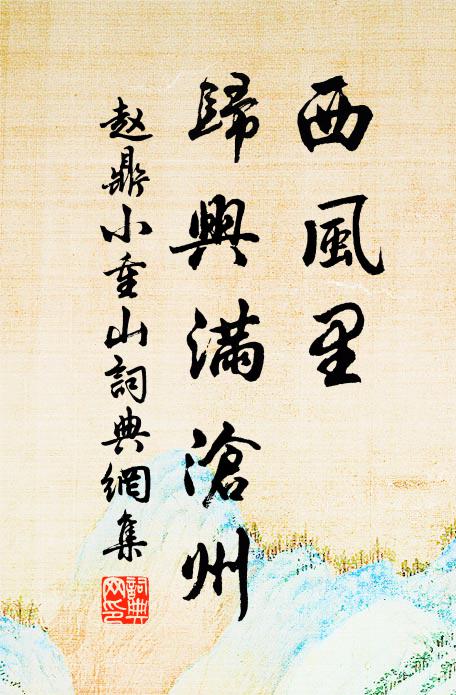 西風里
歸興满滄州
赵鼎小重山詞典網集
詞典
网印